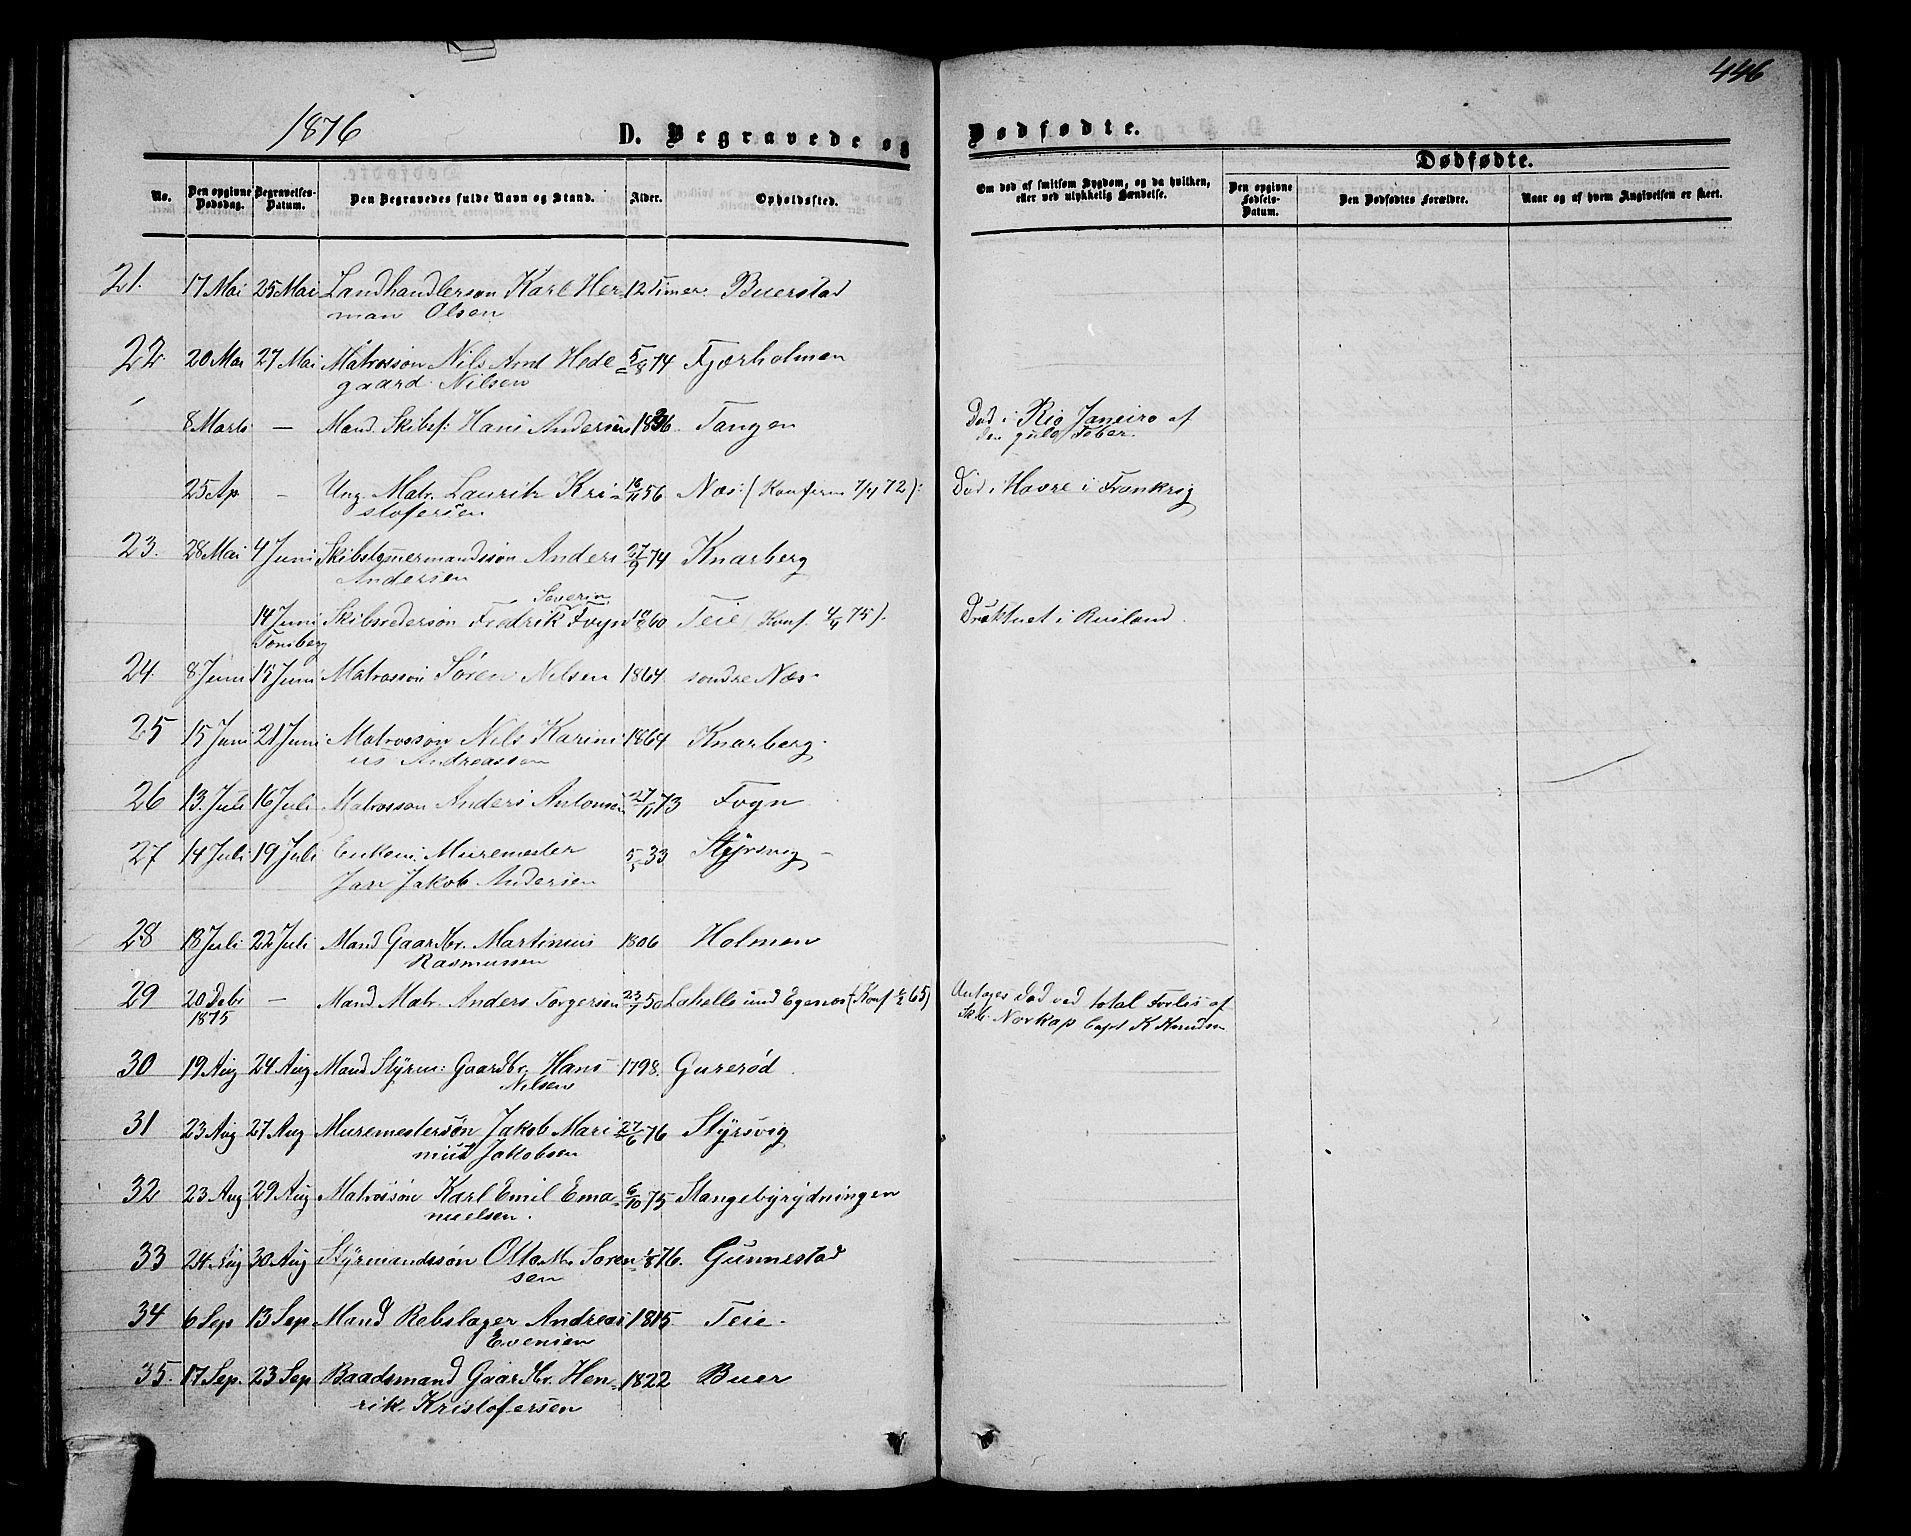 446
1876 D. Begravede og Dødfødte.
Dødfødte.
No. Den opgivne Dødsdag. Begravelses-Datum. Den Begravedes fulde Navn og Stand. Alder. Opholdssted. Om død af smitsom Sygdom, og da hvilken, eller ved ulykkelig Hændelse. Den opgivne Fødsels-Datum. Den Dødfødtes Forældre. Naar og af hvem Angivelsen er skeet.
21. 17 Mai 25 Mai Landhandlersøn Karl Her= 12 Timer. Buerstad
man Olsen
22 20 Mai 27 Mai Matrossøn Nils Arnt Hede= 5/8 74 Fjærholmen
gaard Nilsen
8 Marts — Mand. Skibsf: Hans Andersen 1836. Tangen Død i Rio Janeiro af
den gule Feber.
25 Ap — Ung. Matr. Laurits Kri= 18/11 56 Næs: (Konferm 7/4 72): Død i Havre i Frankrig
stofersen
23. 28 Mai 4 Juni Skibstømermandssøn Anders 27/9 74 Knarberg
Andersen
Severin
14 Juni Skibsredersøn Fredrik Føyn 10/8 60 Teie (Konf. 4/4 75). Druknet i Rusland.
Tønsberg
24. 8 Juni 15 Juni Matrossøn Søren Nilsen 1864 søndre Næs
25 15 Juni 21 Juni Matrossøn Nils Karini 1864 Knarberg
us Andreassen
26 13. Juli 16 Juli Matrossøn Anders Antonsen 27/11 73 Føyn
27 14 Juli 19 Juli Enkem. Muremester 5/5 33 Styrsvig
Jan Jakob Andersen
28 18 Juli 22 Juli Mand Gaardbr. Martinius 1806 Holmen
Rasmussen
29 20 Debr — Mand Matr. Anders Torgersen 23/7 50 Lahelle und Egenæs (Konf 1/2 65) Antages død ved total Forlis af
1875 Skb. Norkap Capt K Knudsen
30 19 Aug 24 Aug Mand Styrm: Gaardbr. Hans 1798. Gurerød
Nilsen
31 23 Aug 27 Aug Muremestersøn Jakob Mari 27/6 76 Styrsvig
nius Jakobsen
32 23 Aug. 29 Aug Matrossøn Karl Emil Ema= 6/10 75 Stangebyrydningen
nuelsen.
33 24 Aug 30 Aug Styrmandssøn Otto M. Søren= 1/8 76. Gunnestad
sen
34 6 Sep 13 Sep Mand Rebslager Andreas 1815 Teie.
Evensen
35. 17 Sep. 23 Sep Baadsmand Gaardbr. Hen= 1822 Buer
rik Kristofersen